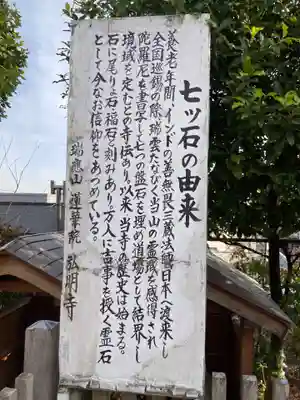 七ッ石の由来
養老年間、インドの善無畏三蔵法師日本へ渡来し
全国巡錫の際、瑞雲たなびく当山の霊域を感得され
陀羅尼を書写し七つの盤石を埋め道場として結界し
境域を定むとの寺伝あり、以来、当寺の歴史は始まる。
石に亀・よ石・福石と刻みあり、万人に吉事を授く霊石
として今なお信仰をあつめている。
瑞應山 蓮華院 弘明寺